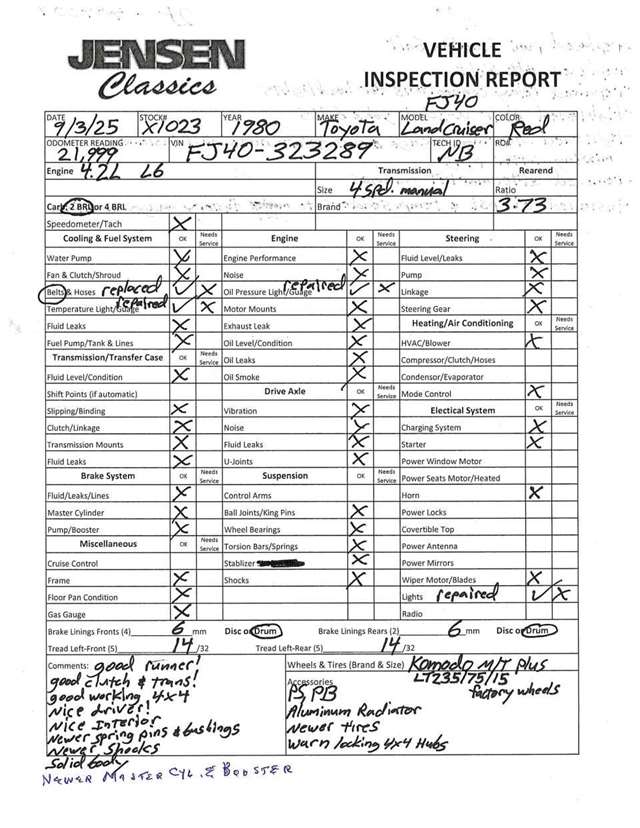 JENSEN
Classics
VEHICLE
INSPECTION REPORT
FJ40
DATE STOCK# YEAR MAKE MODEL COLOR
9/3/25 X1023 1980 Toyota Land Cruiser Red
ODOMETER READING VIN TECH ID RO#
21,999 FJ40-323289 NB
Engine 4.2L L6 Transmission Rearend
Size 4 Spd. manual Ratio
Carb. 2 BRL or 4 BRL Brand 3.73
Speedometer/Tach X
Cooling & Fuel System OK Needs Service Engine OK Needs Service Steering OK Needs Service
Water Pump X Engine Performance X Fluid Level/Leaks X
Fan & Clutch/Shroud X Noise X Pump X
Belts & Hoses replaced ✓ X Oil Pressure Light/Guage repaired ✓ X Linkage X
Temperature Light/Guage repaired ✓ X Motor Mounts X Steering Gear X
Fluid Leaks X Exhaust Leak X Heating/Air Conditioning OK Needs Service
Fuel Pump/Tank & Lines X Oil Level/Condition X HVAC/Blower X
Transmission/Transfer Case OK Needs Service Oil Leaks X Compressor/Clutch/Hoses
Fluid Level/Condition X Oil Smoke X Condensor/Evaporator
Shift Points (if automatic) Drive Axle OK Needs Service Mode Control X
Slipping/Binding X Vibration X Electical System OK Needs Service
Clutch/Linkage X Noise X Charging System X
Transmission Mounts X Fluid Leaks X Starter X
Fluid Leaks X U-Joints X Power Window Motor
Brake System OK Needs Service Suspension OK Needs Service Power Seats Motor/Heated
Fluid/Leaks/Lines X Control Arms Horn X
Master Cylinder X Ball Joints/King Pins X Power Locks
Pump/Booster X Wheel Bearings X Covertible Top
Miscellaneous OK Needs Service Torsion Bars/Springs X Power Antenna
Cruise Control Stablizer X Power Mirrors
Frame X Shocks X Wiper Motor/Blades X
Floor Pan Condition X Lights repaired ✓ X
Gas Gauge X Radio
Brake Linings Fronts (4) 6 mm Disc or Drum Brake Linings Rears (2) 6 mm Disc or Drum
Tread Left-Front (5) 14 /32 Tread Left-Rear (5) 14 /32
Comments: good runner!
good clutch & trans!
good working 4x4
Nice driver!
Nice Interior
Newer spring pins & bushings
Newer Shocks
Solid body
Newer Master Cyl. & Booster
Wheels & Tires (Brand & Size) Komodo M/T Plus
LT235/75/15
factory wheels
Accessories
PS, PB
Aluminum Radiator
Newer tires
Warn locking 4x4 Hubs